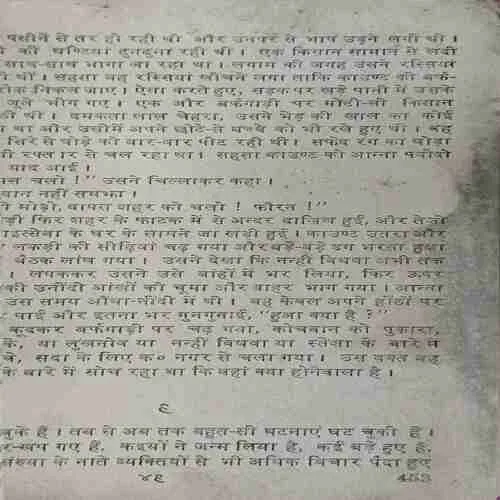 पसीने से तर हो रही थी और उनपर से भाप उठने लगी थी ।
की घण्टियां टुनटुना रही थीं । एक किसान सामान से लदी
साथ-साथ भागा जा रहा था । लगाम की जगह उसने रस्सियां
थीं । सहसा वह रस्सियां खींचने लगा ताकि काउण्ट की बर्फ-
निकल जाए । ऐसा करते हुए, सड़क पर खड़े पानी में उसके
जूते भीग गए । एक और बर्फगाड़ी पर मोटी-सी किसान
थी । दमकता लाल चेहरा, उसने भेड़ की खाल का कोई
था और उसीमें अपने छोटे-से बच्चे को भी रखे हुए थी । वह
सिरे से घोड़े को बार-बार पीट रही थी । सफेद रंग का घोड़ा
रफ्तार से चल रहा था । सहसा काउण्ट को आन्ना
याद आई ।
चलो !" उसने चिल्लाकर कहा ।
नहीं समझा ।
मोड़ो, वापस शहर को चलो ! फौरन !"
फिर शहर के फाटक में से अन्दर दाखिल हुई, और तेजी
के घर के सामने जा खड़ी हुई । काउण्ट उतरा और
लकड़ी की सीढ़ियां चढ़ गया और बड़े-बड़े डग भरता हुआ
बैठक लांघ गया । उसने देखा कि नन्ही विधवा अभी तक
। लपककर उसने उसे बांहों में भर लिया, फिर ऊपर
उनींदी आंखों को चूमा और बाहर भाग गया । आन्ना
उस समय औंघा-नींदी में थी । वह केवल अपने होंठों पर
पाई और इतना भर गुनगुनाई, "हुआ क्या है ?"
कूदकर बर्फगाड़ी पर चढ़ गया, कोचवान को पुकारा,
के, या लुखनोव या नन्ही विधवा या स्तेशा के बारे में
सदा के लिए क० नगर से चला गया । उस वक्त वह
के बारे में सोच रहा था कि वहां क्या होनेवाला है ।
९
चुके हैं । तब से अब तक बहुत-सी घटनाएं घट चुकी हैं ।
खप गए हैं, कइयों ने जन्म लिया है, कई बड़े हुए हैं,
संख्या के नाते व्यक्तियों से भी अधिक विचार पैदा हुए
४९
453